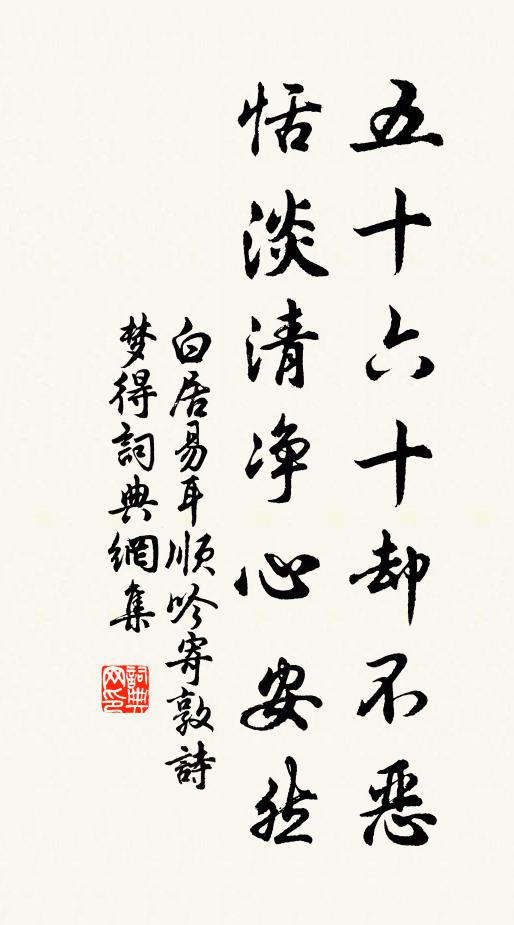 五十六十却不恶
恬淡清净心安然
白居易耳顺吟寄敦詩
梦得詞典網集
詞典
网印